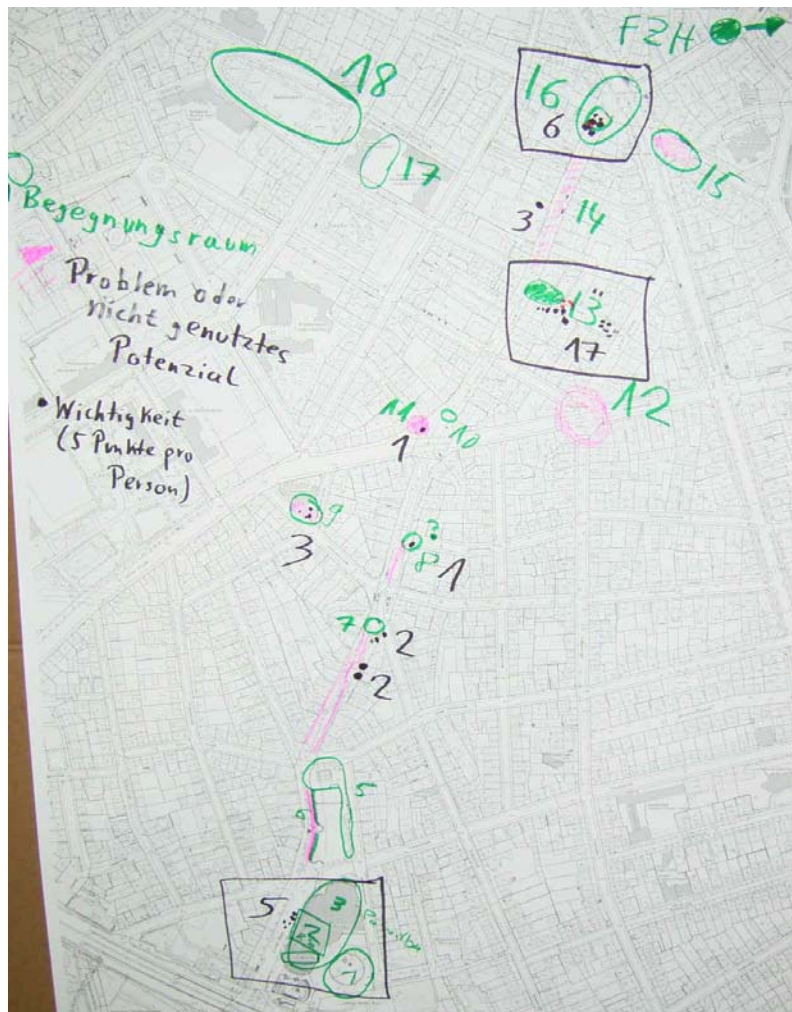 FZH
18
16
6
17
15
Begegnungsraum
3
14
Problem oder
nicht genutztes
Potenzial
13
17
12
• Wichtigkeit
(5 Punkte pro
Person)
11
10
1
9
3
?
8
1
7
2
2
5
6
5
3
2
1